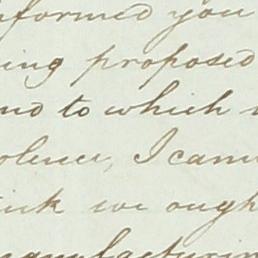 nformed you
ing proposed
to which
olence, I cann
we ough
manufacturin